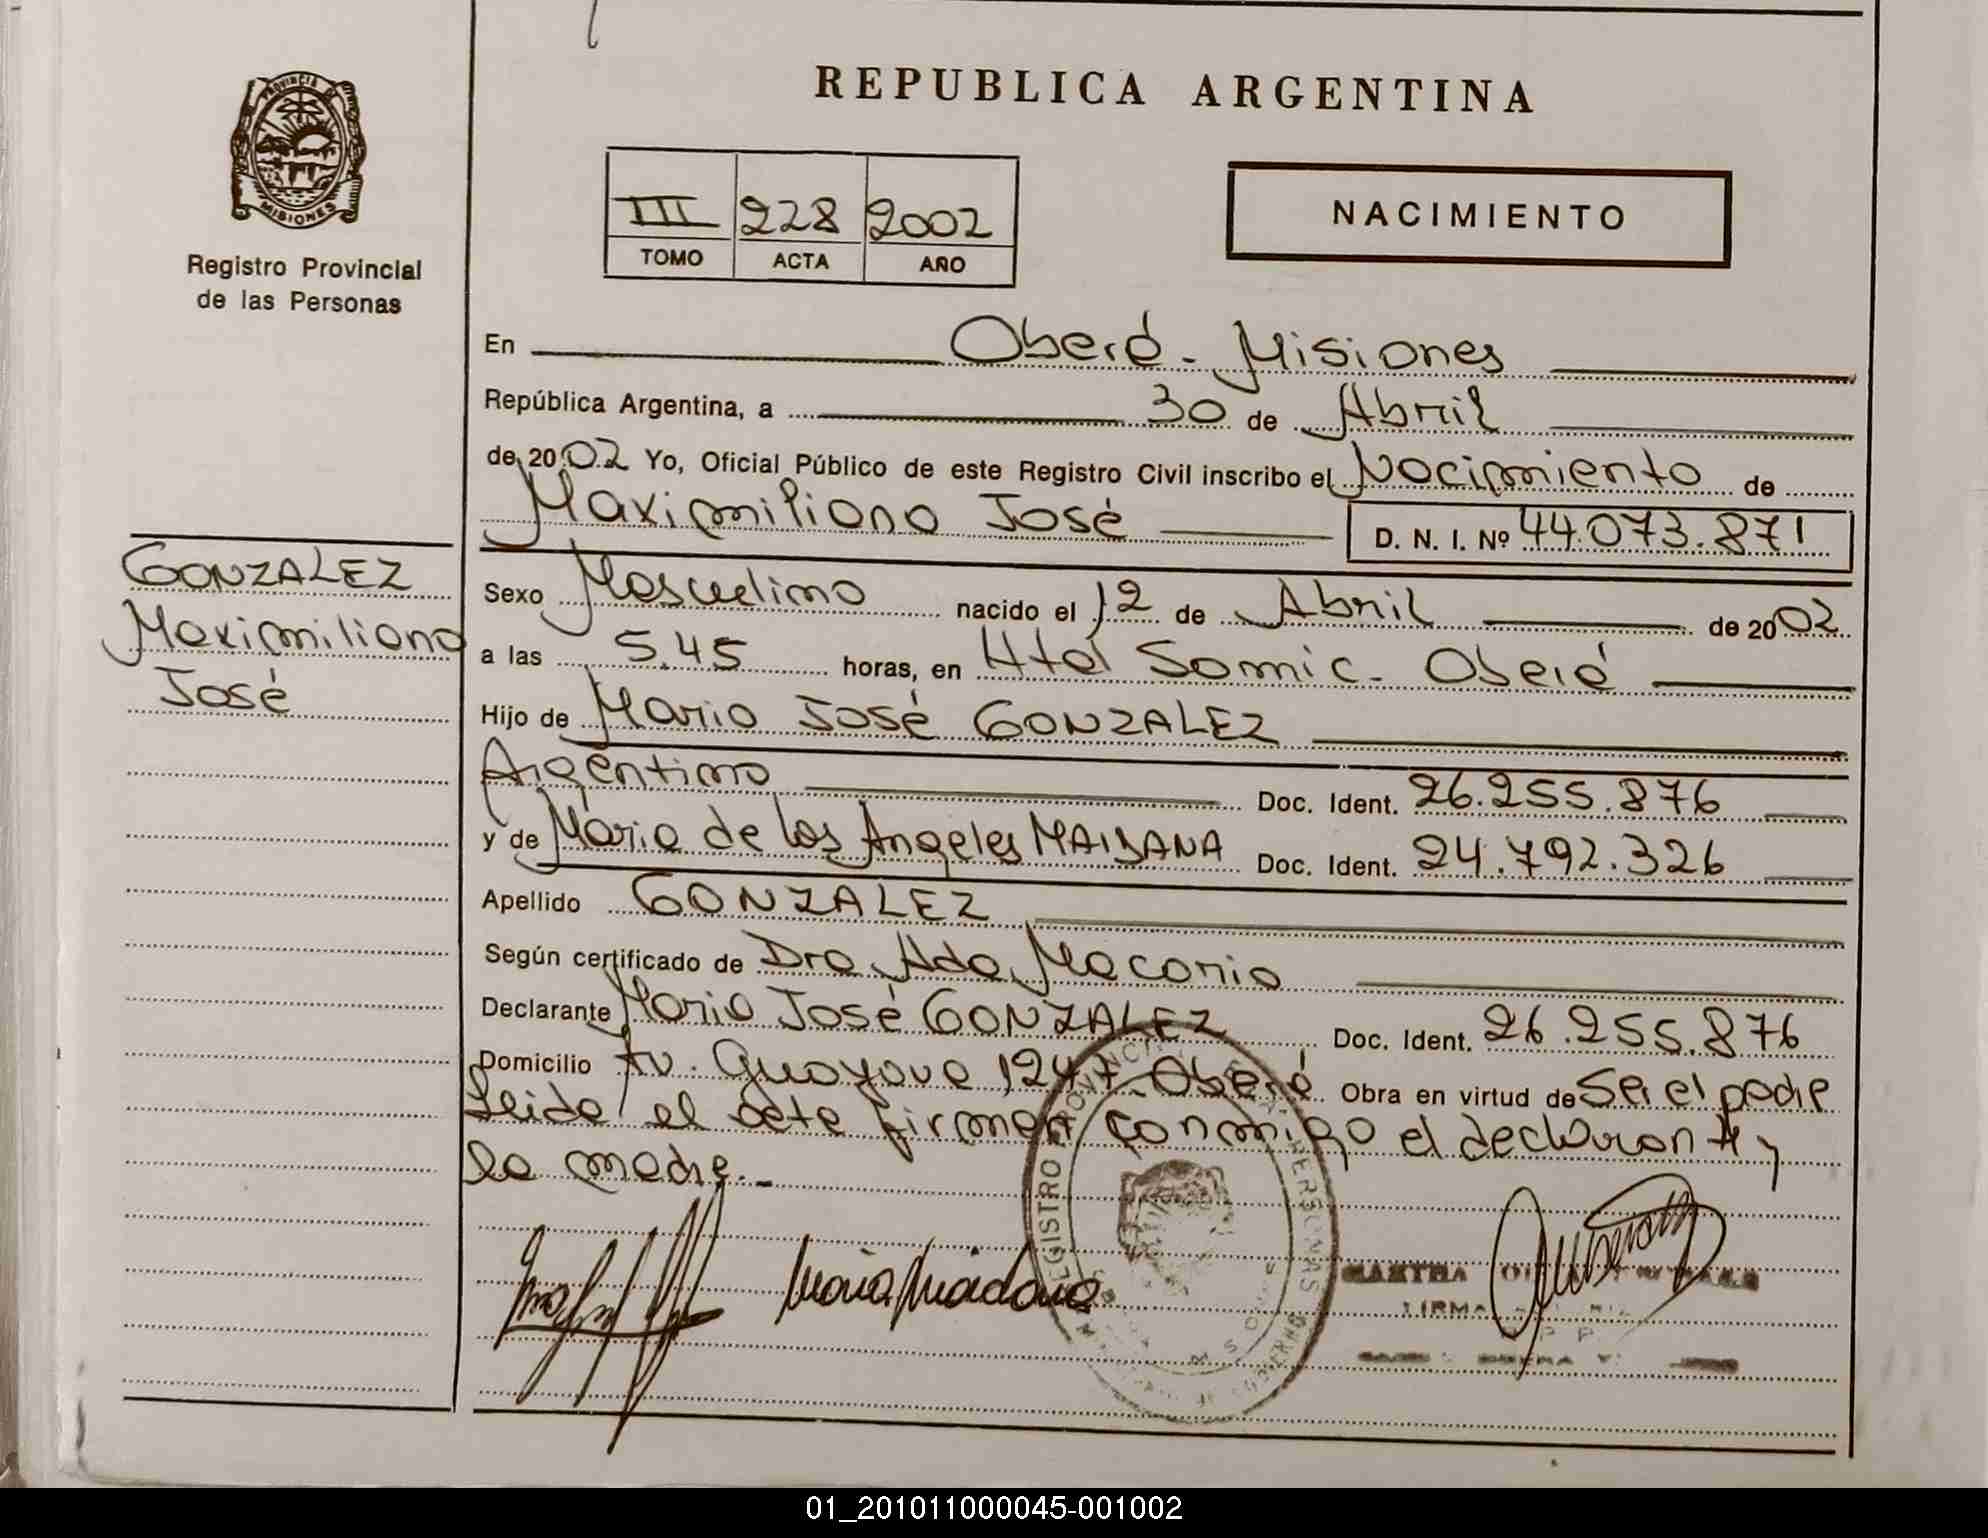 REPUBLICA ARGENTINA
PROVINCIA DE
MISIONES
Registro Provincial
de las Personas
III 228 2002
TOMO ACTA AÑO
NACIMIENTO
En Oberá - Misiones
República Argentina, a 30 de Abril
de 2002 Yo, Oficial Público de este Registro Civil inscribo el Nacimiento de
Maximiliano José D. N. I. Nº 44.073.871
GONZALEZ
Maximiliano
José
Sexo Masculino nacido el 12 de Abril de 2002
a las 5.45 horas, en Htal Samic - Oberá
Hijo de Mario José GONZALEZ
Argentino Doc. Ident. 26.255.876
y de María de los Angeles MAIDANA Doc. Ident. 24.792.326
Apellido GONZALEZ
Según certificado de Dra Ada Macorio
Declarante Mario José GONZALEZ Doc. Ident. 26.255.876
Domicilio Av. Guayove 1247 - Oberá Obra en virtud de Ser el padre
Leida el acta firman conmigo el declarante y
la madre.-
María Maidana
REGISTRO PROVINCIAL PERSONAS
MARTHA
FIRMA
01_201011000045-001002